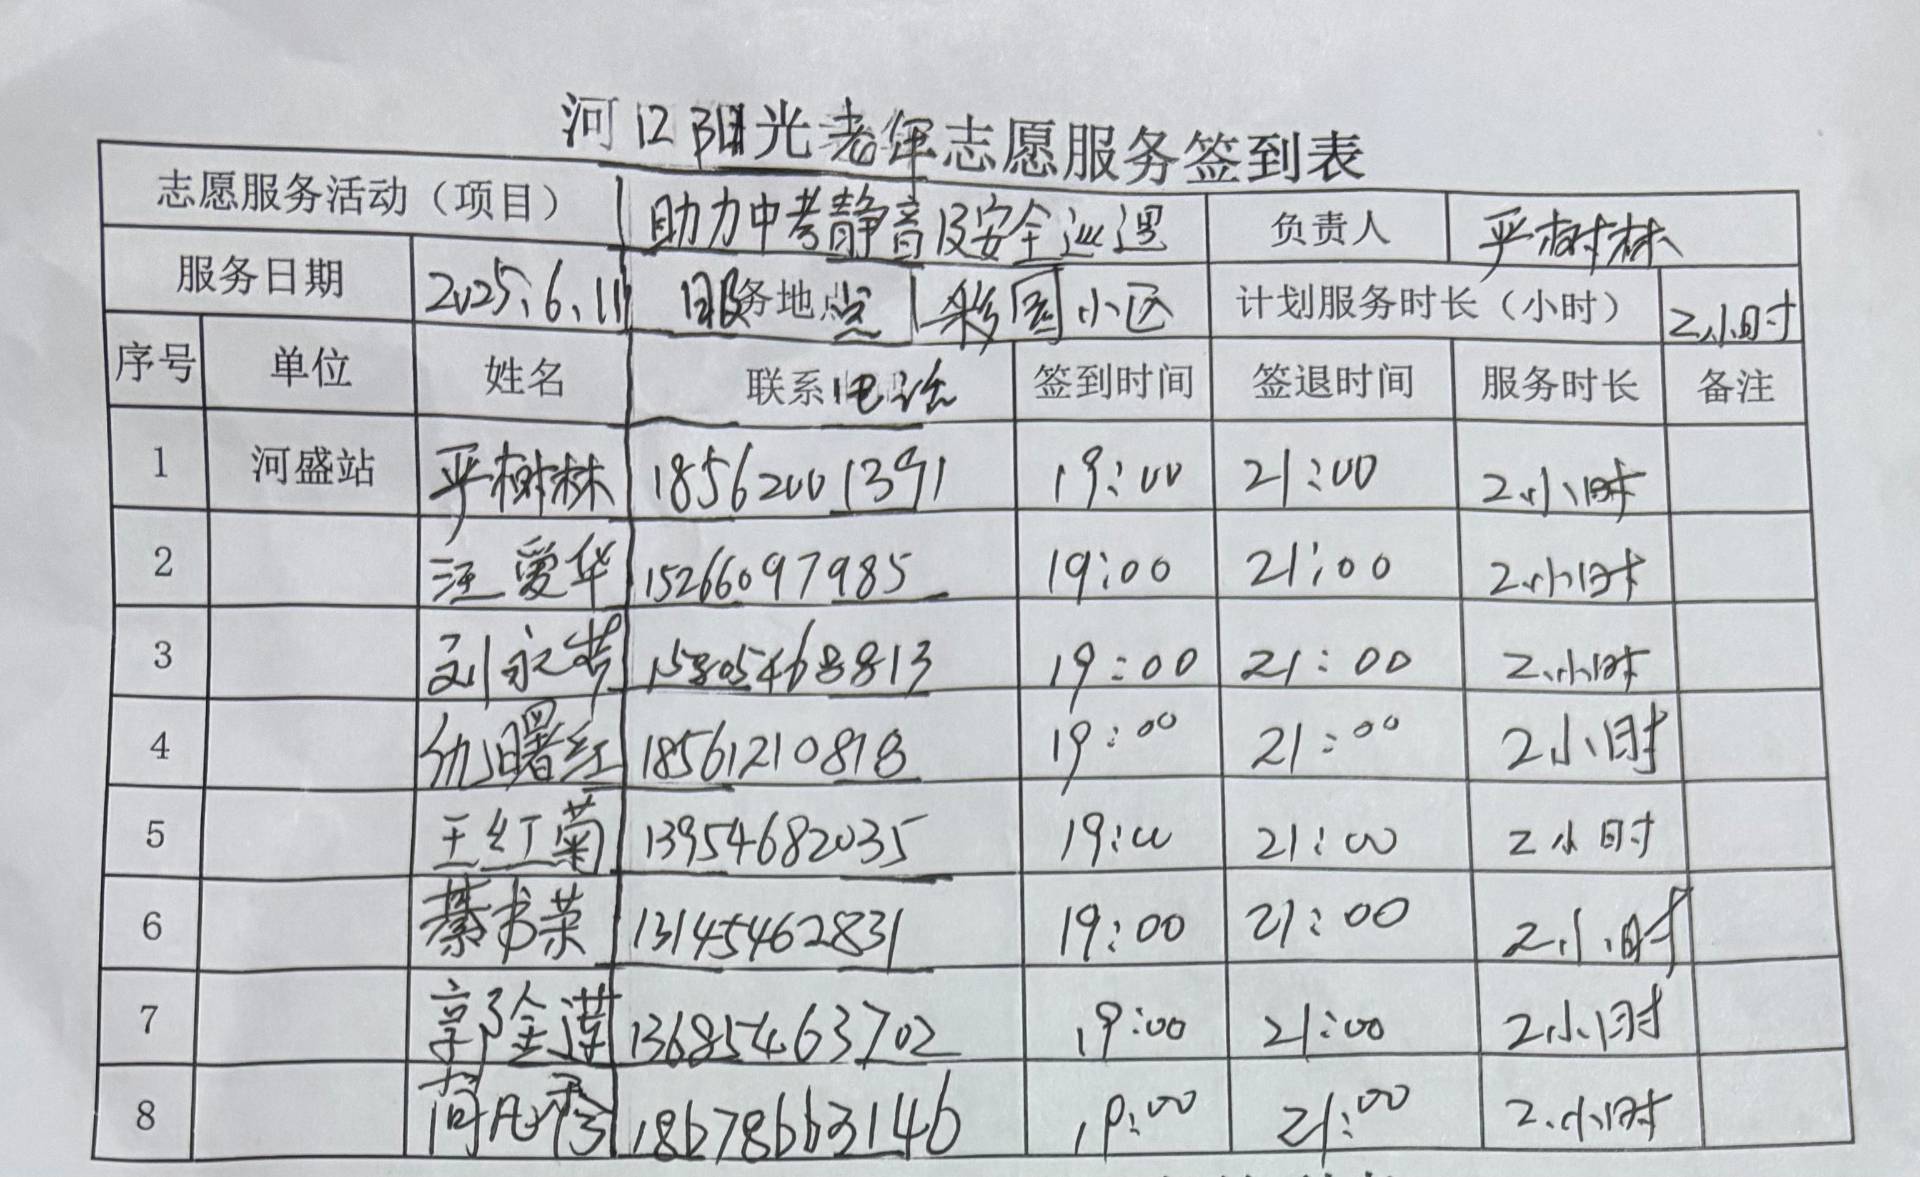 河口阳光老年志愿服务签到表
志愿服务活动（项目） 助力中考静音及安全巡逻 负责人 严树林
服务日期 2025.6.11 服务地点 彩园小区 计划服务时长（小时） 2小时
序号 单位 姓名 联系电话 签到时间 签退时间 服务时长 备注
1 河盛站 严树林 18562001391 19:00 21:00 2小时
2 汪爱华 15266097985 19:00 21:00 2小时
3 刘永芳 15805468813 19:00 21:00 2小时
4 仇曙红 18561210818 19:00 21:00 2小时
5 王红菊 13954682035 19:00 21:00 2小时
6 綦书荣 13145462831 19:00 21:00 2小时
7 郭金莲 13685463702 19:00 21:00 2小时
8 秀 18678663146 19:00 21:00 2小时